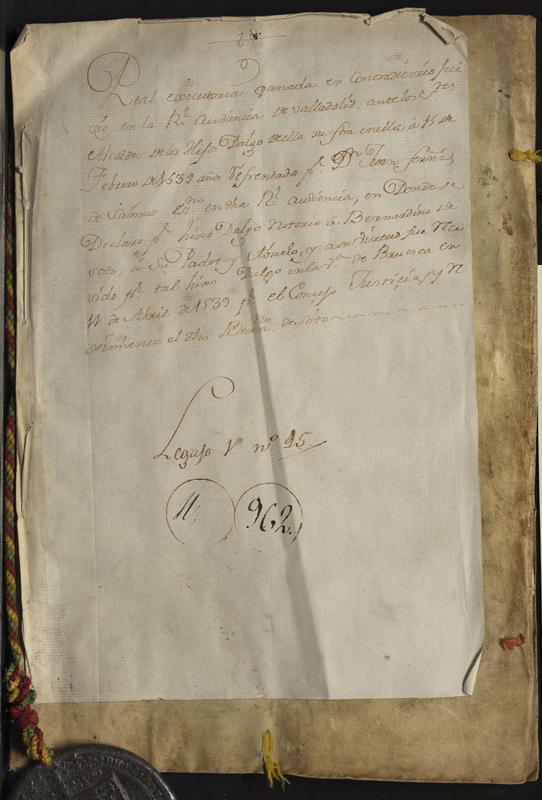 Real executoria ganada en Contraditorio jui
zio en la Rl. Audiencia de Valladolid antelos Sres
Alcaldes delos Hijos Dalgo della su fha en ella à 15 de
Febrero de 1539 años Refrendada pr. Dn. Juan
de Salinas en dha Rl. Audiencia, en Donde se
Declaro pr. hixo Dalgo Notorio à Bernardino de
Soto, à Su Padre y Abuelo, y a su virtud fue Reci
vido pr. tal hixo Dalgo en la va. de Briviesca en
11 de Abril de 1539 pr. el Concejo Justicia, y R
el dho de Soto
Legajo 1º nº 15
11:
962.